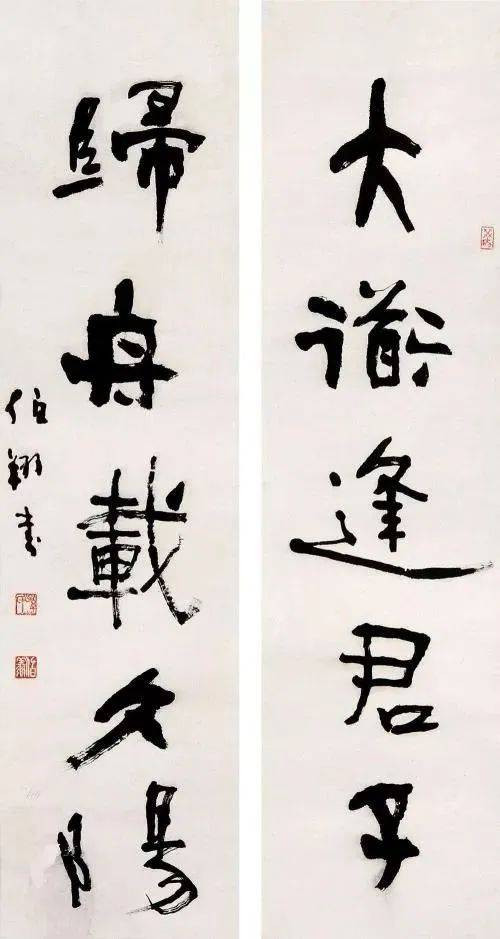 大衜逢君子
歸舟載夕陽
伯翔書